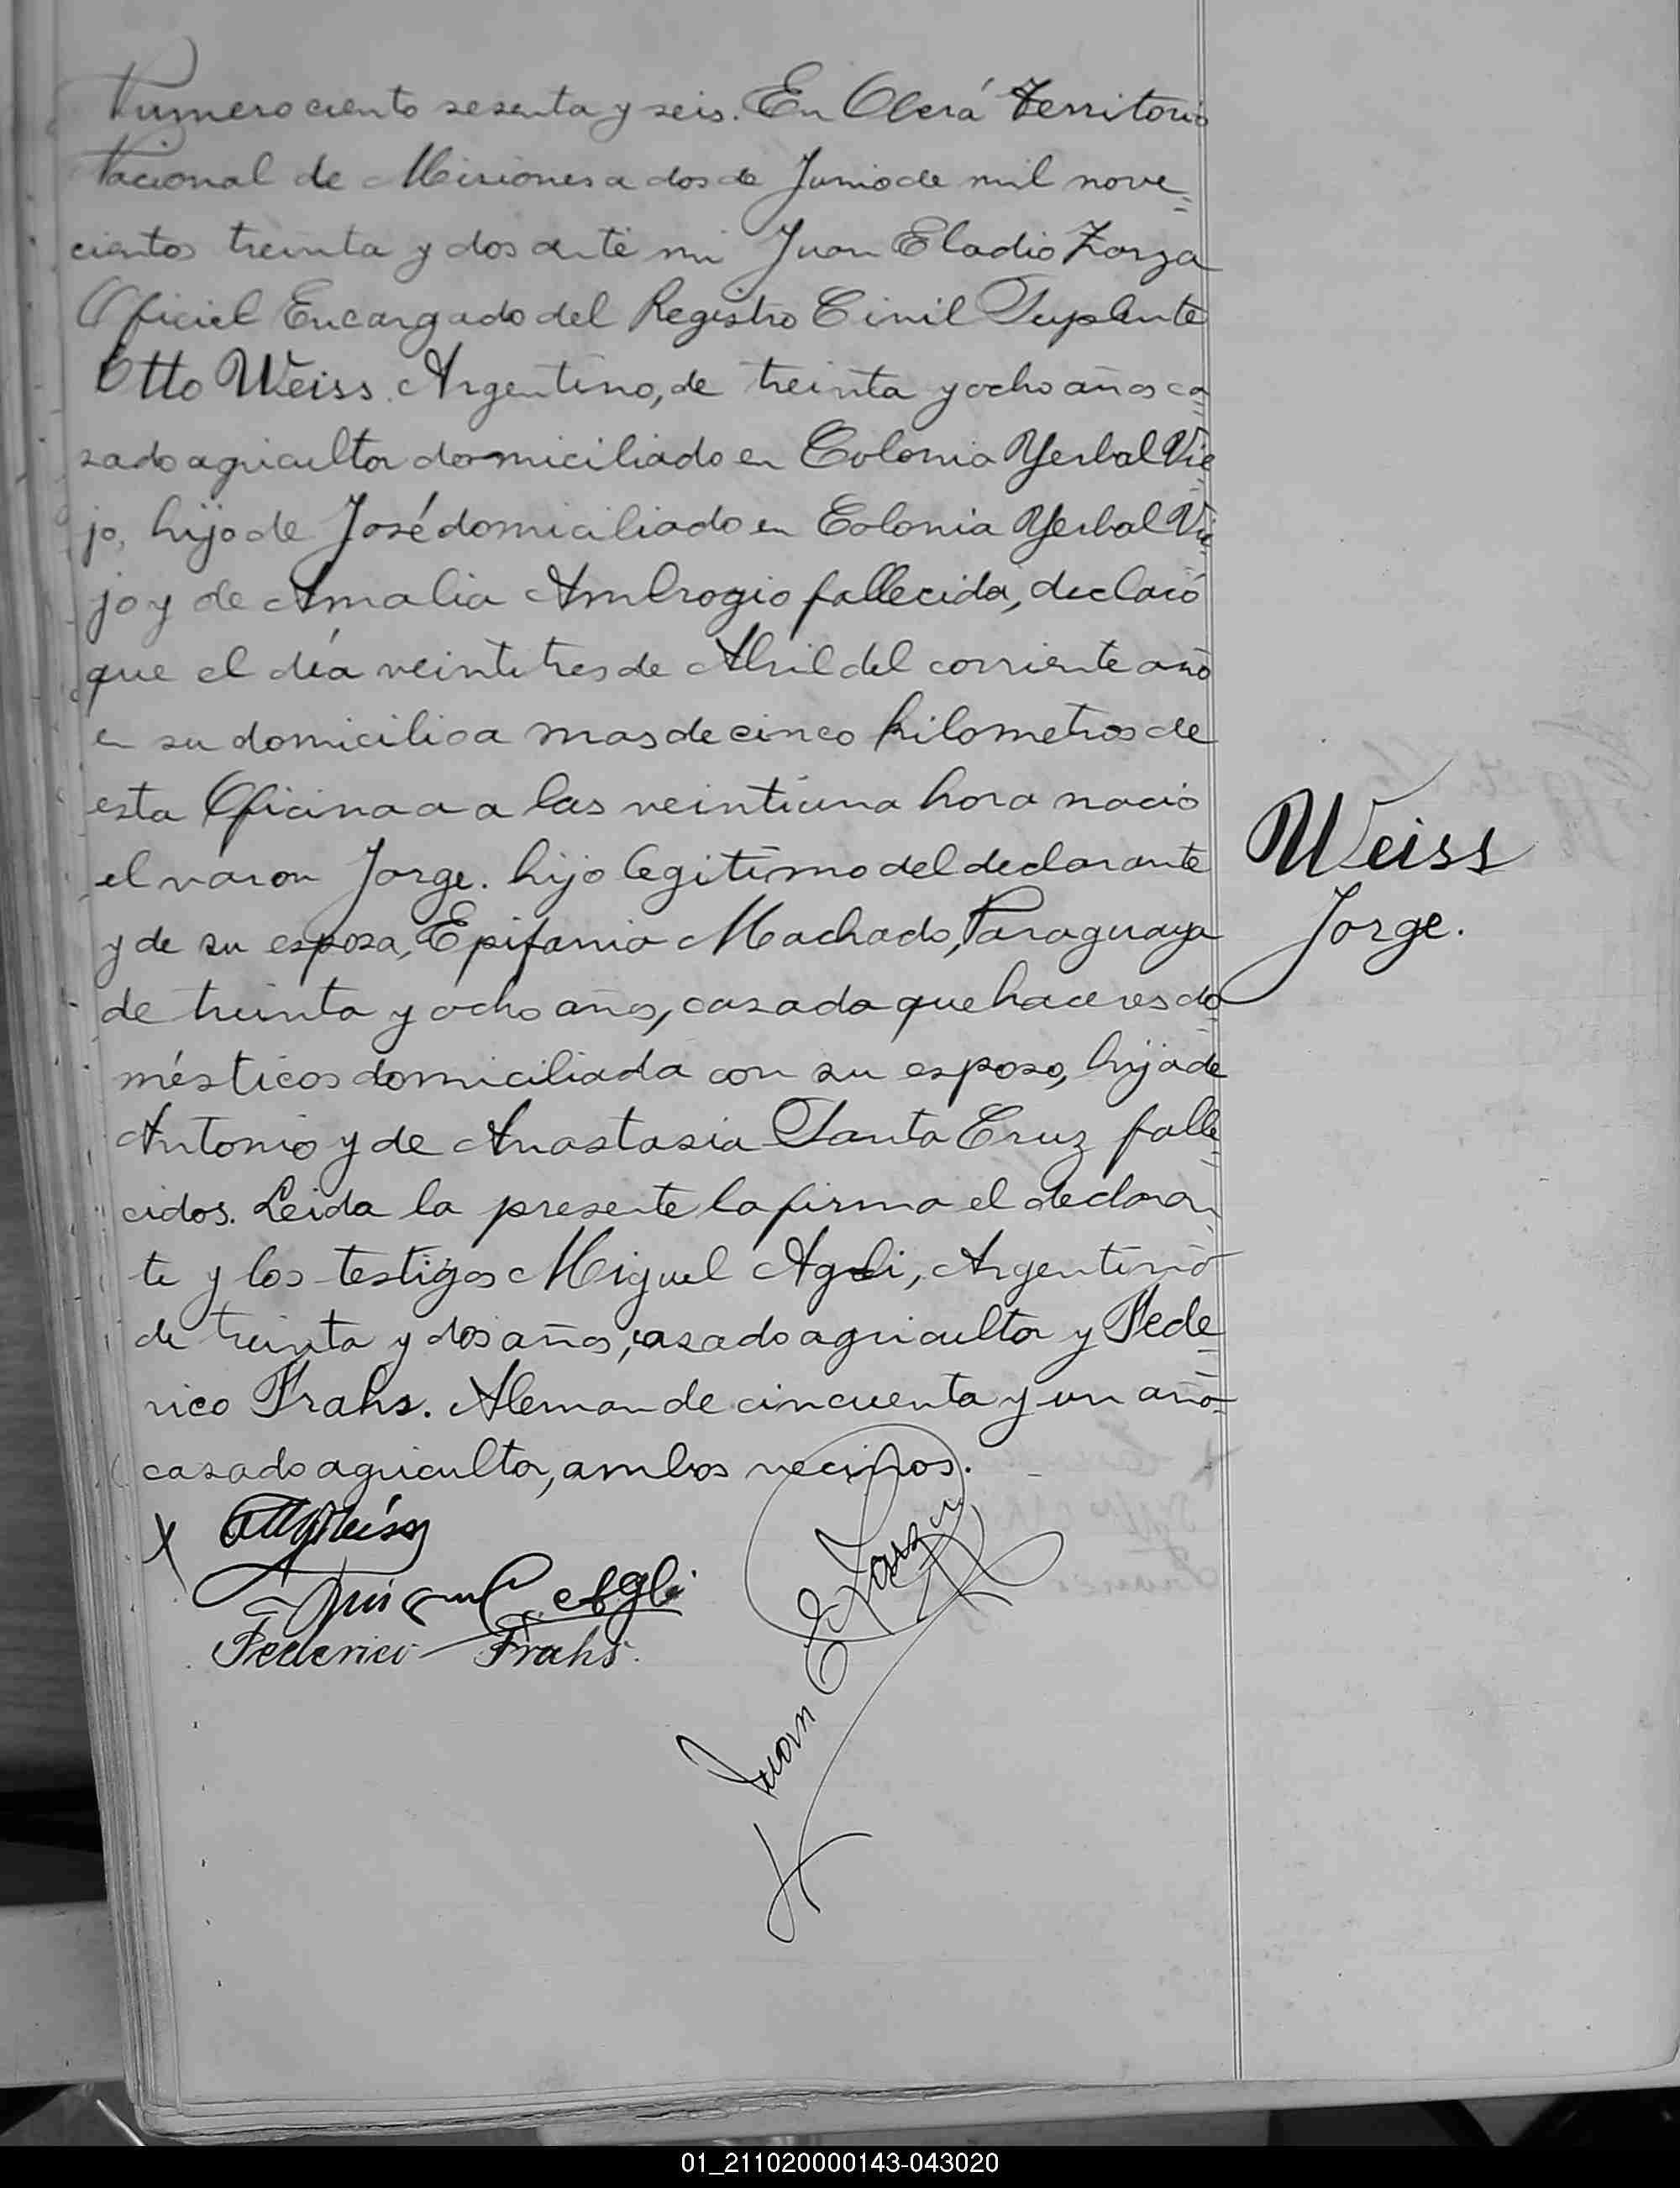 Numero ciento sesenta y seis. En Oberá Territorio
Nacional de Misiones a dos de Junio de mil nove=
cientos treinta y dos ante mi Juan Eladio Zarza
Oficial Encargado del Registro Civil Suplente
Otto Weiss. Argentino, de treinta y ocho años ca=
sado agricultor domiciliado en Colonia Yerbal Vie=
jo, hijo de José domiciliado en Colonia Yerbal Vie=
jo y de Amalia Ambrogio fallecida, declaró
que el día veintitres de Abril del corriente año
en su domicilio a mas de cinco kilometros de
esta Oficina a a las veintiuna hora nació
el varon Jorge. hijo legitimo del declarante
y de su esposa, Epifania Machado, Paraguaya
de treinta y ocho años, casada quehaceres do=
mésticos domiciliada con su esposo, hija de
Antonio y de Anastasia Santa Cruz falle=
cidos. Leida la presente la firma el declaran=
te y los testigos Miguel Agli, Argentino
de treinta y dos años, casado agricultor y Fede=
rico Frahs. Aleman de cincuenta y un año=
casado agricultor, ambos vecinos.
Weiss
Jorge.
X Otto Weiss
Miguel Agli
Federico Frahs.
Juan E Zarza
01_211020000143-043020